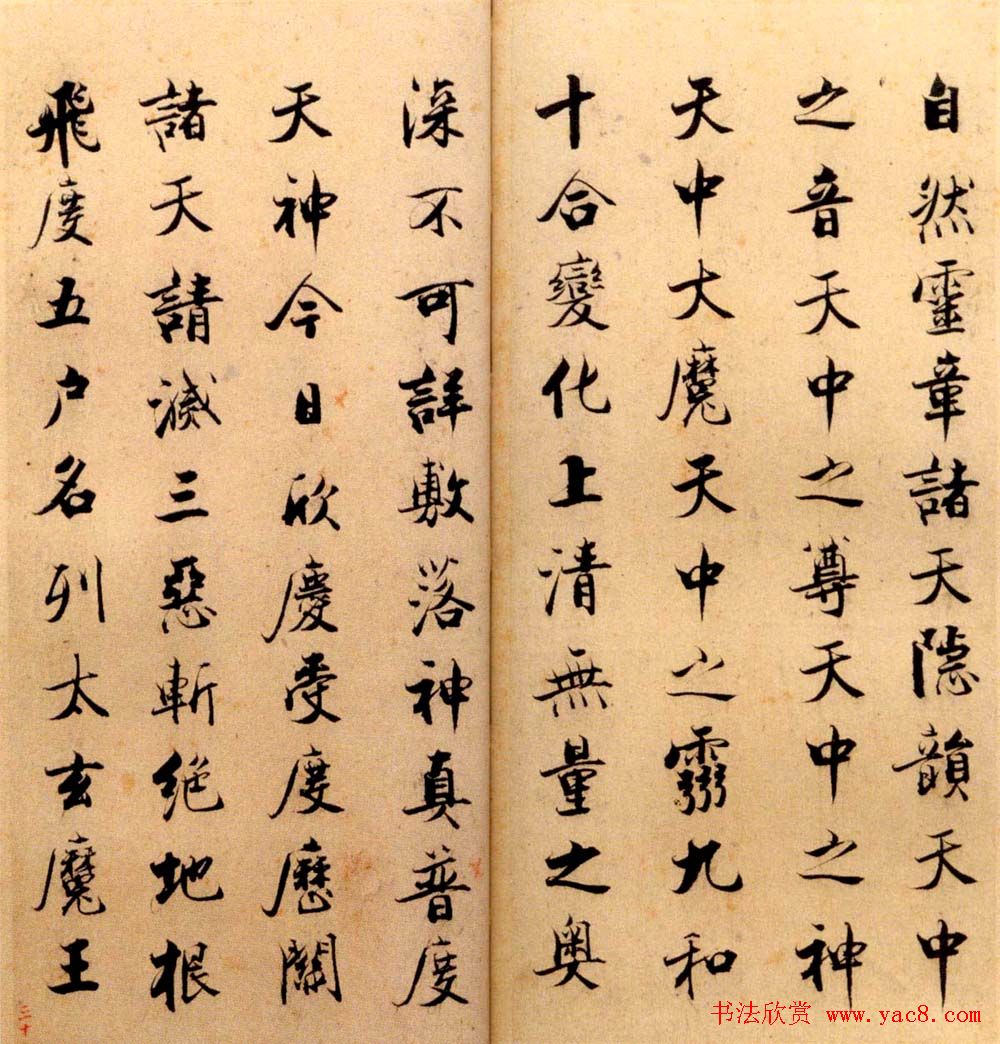 自然靈章諸天隱韻天中
之音天中之尊天中之神
天中大魔天中之靈九和
十合變化上清無量之奧
深不可詳敷落神真普度
天神今日欣慶受度歷關
諸天請滅三惡斬絕地根
飛度五户名列太玄魔王
三十
书法欣赏 www.yac8.com